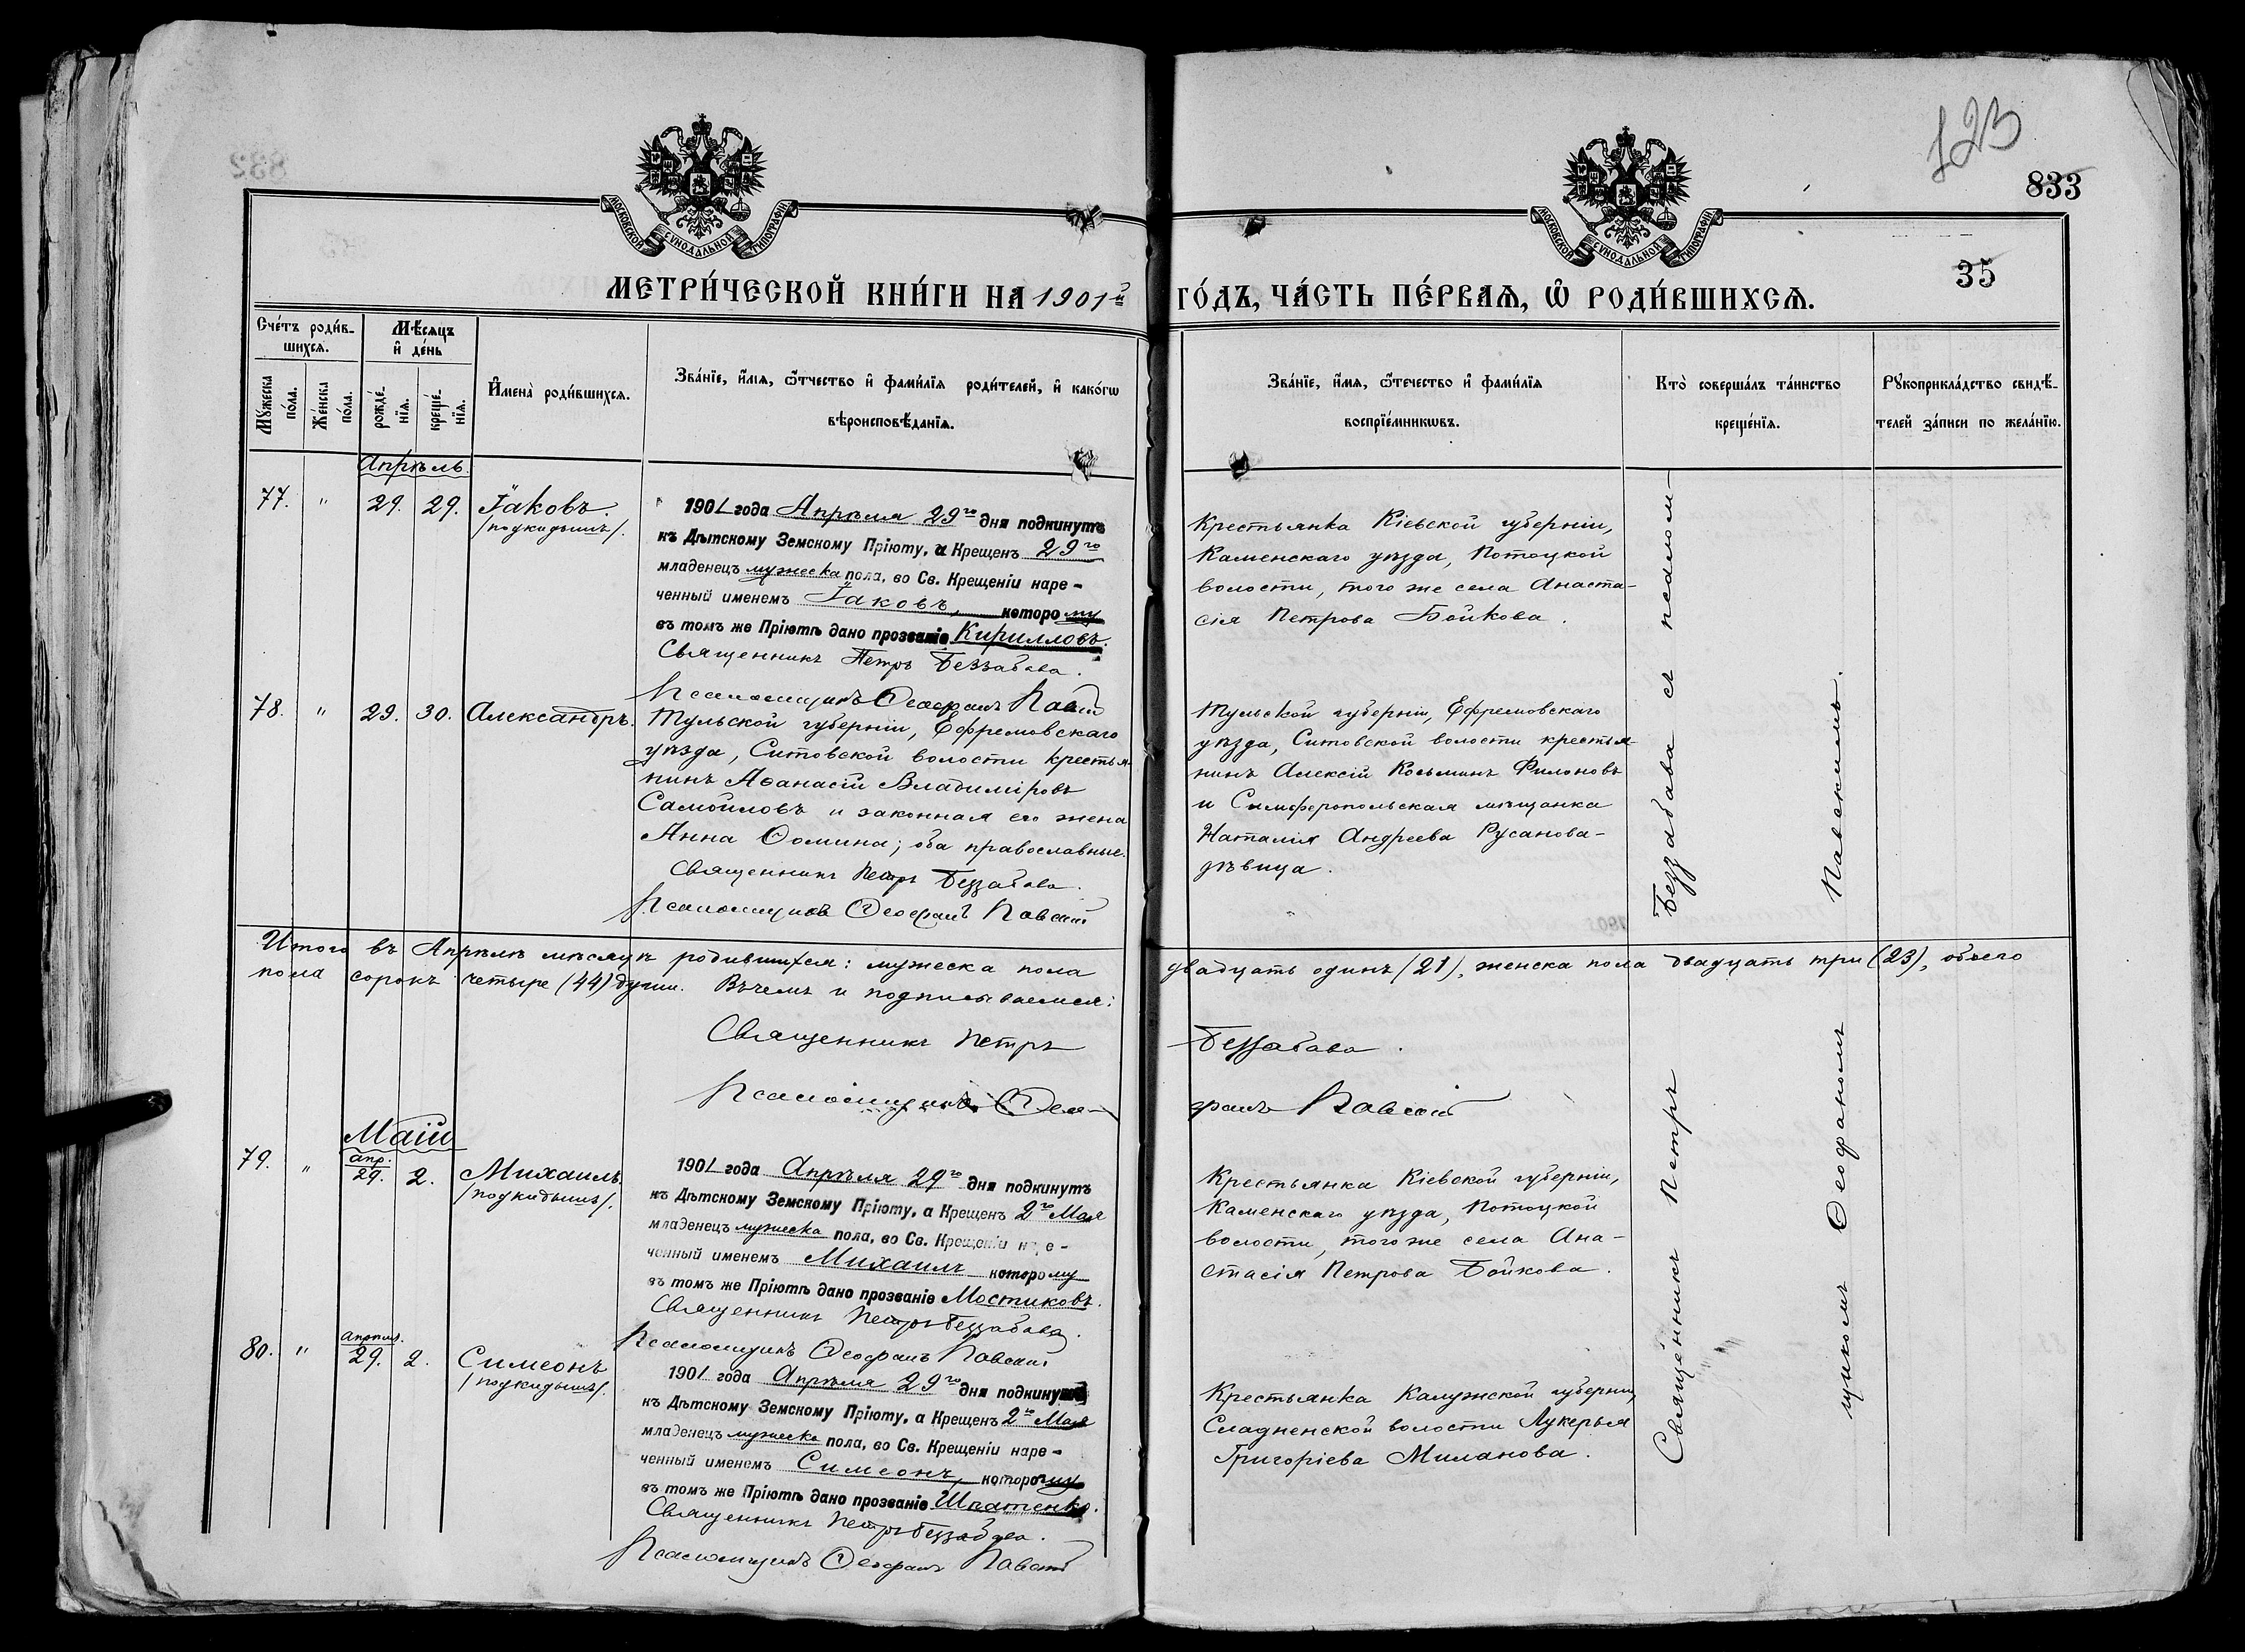 123
833
35
МОСКОВСКОЙ СѴНОДАЛЬНОЙ ТИПОГРАФІИ
МОСКОВСКОЙ СѴНОДАЛЬНОЙ ТИПОГРАФІИ
МЕТРИ́ЧЕСКОЙ КНИ́ГИ НА 1901й ГО́ДЪ, ЧА́СТЬ ПЕ́РВАѦ, Ѡ҆ РОДИ́ВШИХСѦ.
Сче́тъ роди́в-
шихсѧ.
Мꙋжеска по́ла.
Же́нска по́ла.
Мѣ́сѧцъ
и҆ де́нь
рожде́-нїѧ.
креще́-нїѧ.
И҆мена̀ роди́вшихсѧ.
Зва́нїе, и҆́мѧ, ѻ҆́тчество и҆ фами́лїѧ роди́телей, и҆ како́гѡ
вѣроисповѣ́данїѧ.
Зва́нїе, и҆́мѧ, ѻ҆́течество и҆ фами́лїѧ
воспрїе́мникѡвъ.
Кто̀ соверша́лъ та́инство
креще́нїѧ.
Рꙋкоприкла́дство свидѣ́-
телей за́писи по жела́нїю.
Апрѣль.
77. " 29. 29. Іаковъ.
/подкидышъ/.
1901 года Апрѣля 29го дня подкинутъ
къ Дѣтскому Земскому Пріюту, а Крещенъ 29го
младенецъ мужеска пола, во Св. Крещеніи наре-
ченный именемъ Іаковъ, которому
въ томъ же Пріютѣ дано прозваніе Кирилловъ.
Священникъ Петръ Беззабава.
Псаломщикъ Ѳеофанъ Павскій
Крестьянка Кіевской губерніи,
Каменскаго уѣзда, Потоцкой
волости, того же села Анаста-
сія Петрова Бойкова.
78. " 29. 30. Александръ.
Тульской губерніи, Ефремовскаго
уѣзда, Ситовской волости крестья-
нинъ Аѳанасій Владиміровъ
Самойловъ и законная его жена
Анна Ѳомина; оба православные.
Священникъ Петръ Беззабава.
Псаломщикъ Ѳеофанъ Павскій
Тульской губерніи, Ефремовскаго
уѣзда, Ситовской волости крестья-
нинъ Алексій Косьминъ Филоновъ
и Симферопольская мѣщанка
Наталія Андреева Русанова-
дѣвица.
Итого въ Апрѣлѣ мѣсяцѣ родившихся: мужеска пола двадцать одинъ (21), женска пола двадцать три (23), обоего
пола сорокъ четыре (44) души. Въ чемъ и подписываемся:
Священникъ Петръ Беззабава.
Псаломщикъ Ѳео-фанъ Павскій
Маій
79. " апр. 29. 2. Михаилъ
/подкидышъ/.
1901 года Апрѣля 29го дня подкинутъ
къ Дѣтскому Земскому Пріюту, а Крещенъ 2го Мая
младенецъ мужеска пола, во Св. Крещеніи наре-
ченный именемъ Михаилъ которому
въ томъ же Пріютѣ дано прозваніе Мостиковъ.
Священникъ Петръ Беззабава.
Псаломщикъ Ѳеофанъ Павскій
Крестьянка Кіевской губерніи,
Каменскаго уѣзда, Потоцкой
волости, того же села Ана-
стасія Петрова Бойкова.
80. " апрѣл. 29. 2. Симеонъ
/подкидышъ/.
1901 года Апрѣля 29го дня подкинутъ
къ Дѣтскому Земскому Пріюту, а Крещенъ 2го Мая
младенецъ мужеска пола, во Св. Крещеніи наре-
ченный именемъ Симеонъ, которому
въ томъ же Пріютѣ дано прозваніе Шпатенко.
Священникъ Петръ Беззабава.
Псаломщикъ Ѳеофанъ Павскій
Крестьянка Калужской губерніи,
Сладненской волости Лукерья
Григоріева Миланова.
Священникъ Петръ Беззабава съ псалом-
щикомъ Ѳеофаномъ Павскимъ.